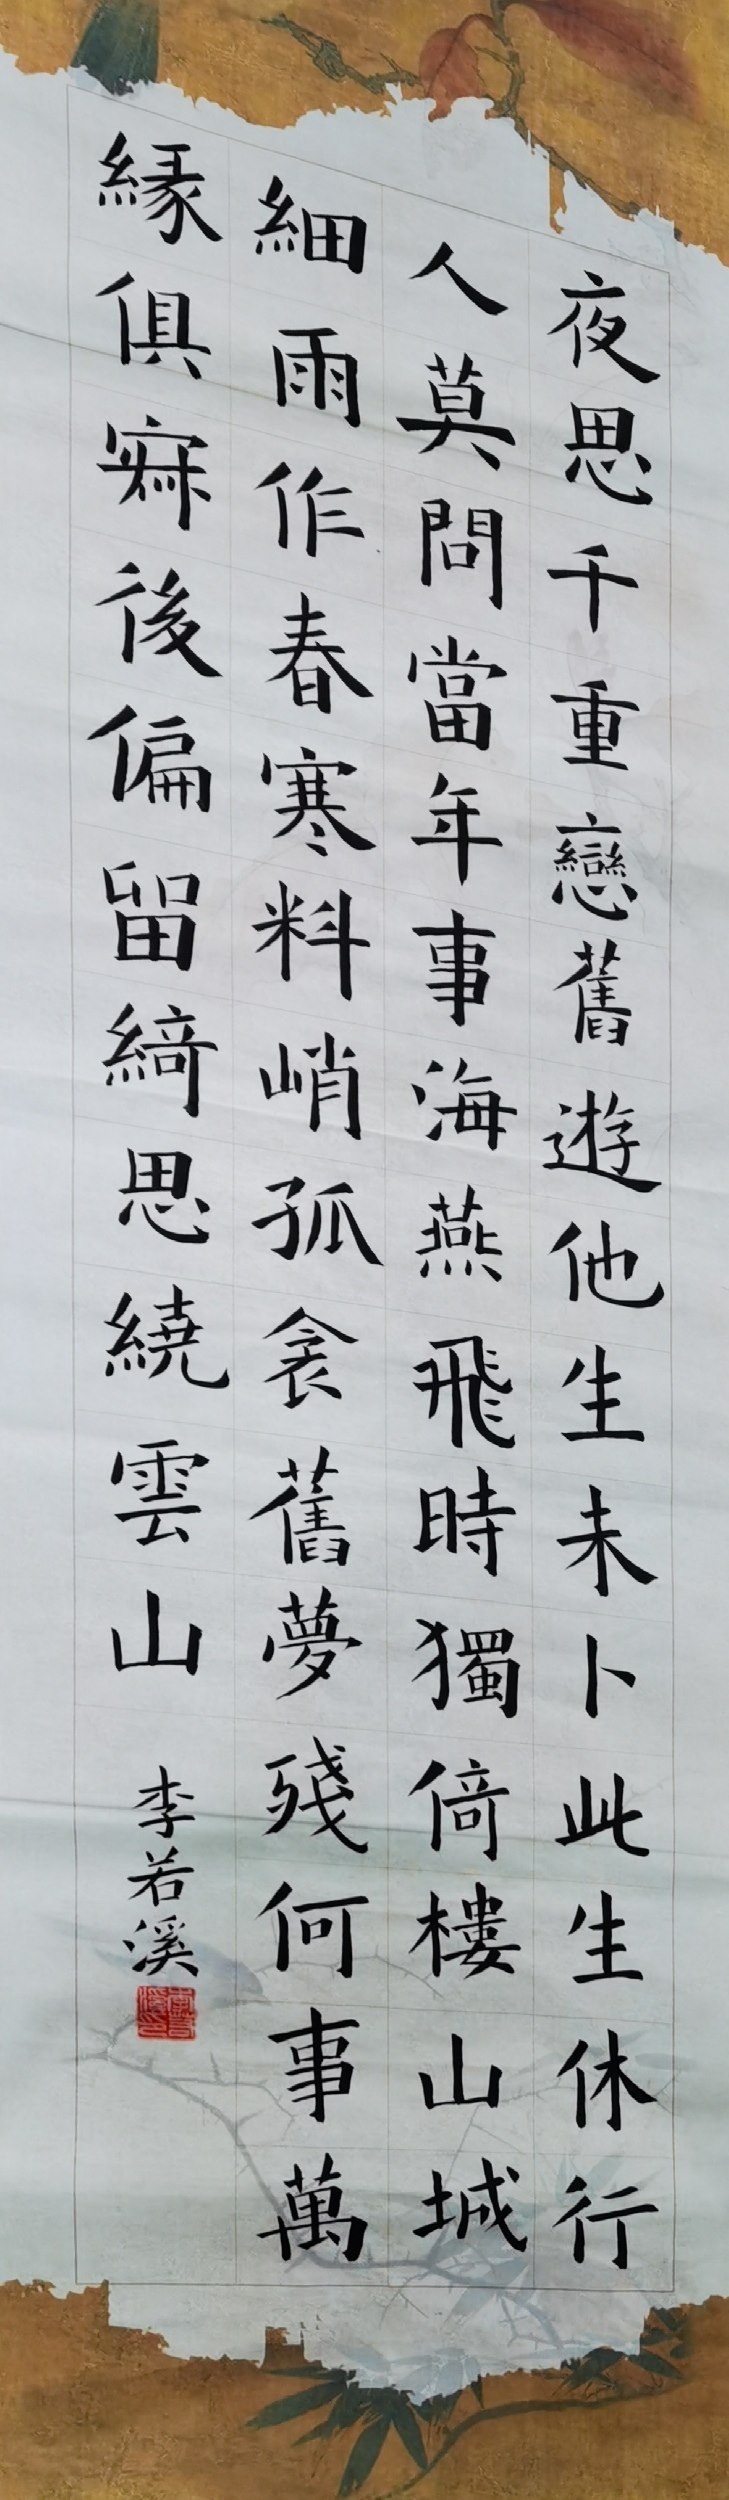 夜思千重戀舊遊他生未卜此生休行
人莫問當年事海燕飛時獨倚樓山城
細雨作春寒料峭孤衾舊夢殘何事萬
緣俱寂後偏留綺思繞雲山
李若溪